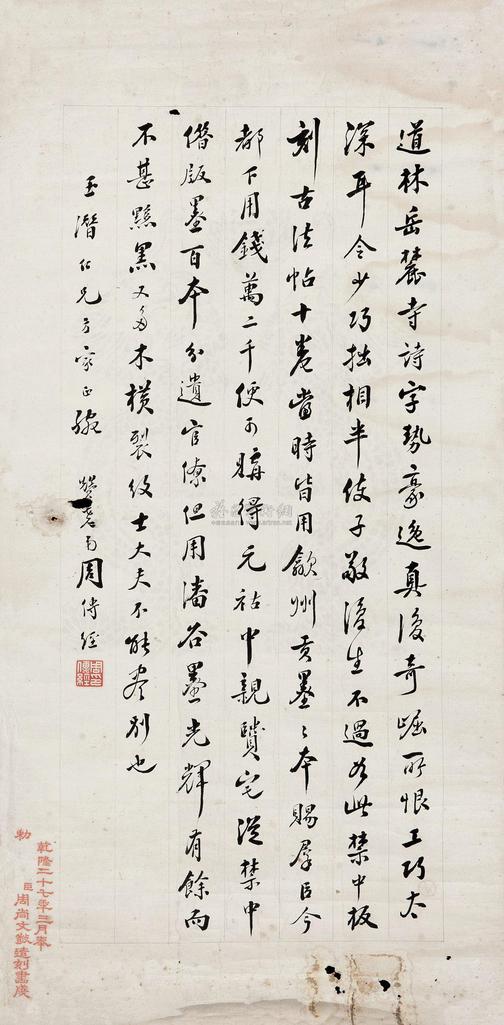 道林岳麓寺詩字勢豪逸真復奇崛所恨工巧太
深耳令少巧拙相半使子敬復生不過如此禁中板
刻古法帖十卷當時皆用歙州貢墨墨本賜群臣今
都下用錢萬二千便可購得元祐中親賢宅從禁中
借版墨百本分遺官僚但用潘谷墨光輝有餘而
不甚黟黑又多木橫裂紋士大夫不能盡別也
玉潛仁兄方家正腕
周傳經
周印傳經
乾隆二十七年三月奉
勅
臣周尚文
造刻畫廣